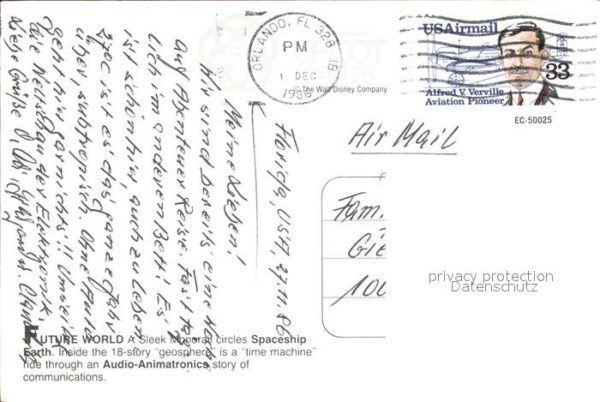 ORLANDO, FL 328
PM
1 DEC
1986
USAirmail
33
Alfred V. Verville
Aviation Pioneer
© The Walt Disney Company
EC-50025
Air Mail
Florida, USA, 27.11.86
Meine Lieben!
Wir sind bereits eine Woche
auf Abenteuer Reise. Fast
lich im anderen Bett! Es
ist schön hier, auch zu leben
27°C ist es das ganze Jahr
über subtropisch. Ohne Auto
geht hier gar nichts!!
die der Elektronik
Liebe Grüße
Fam.
Gie
100
privacy protection
Datenschutz
FUTURE WORLD A Sleek Monorail circles Spaceship
Earth. Inside the 18-story "geosphere" is a "time machine"
ride through an Audio-Animatronics story of
communications.